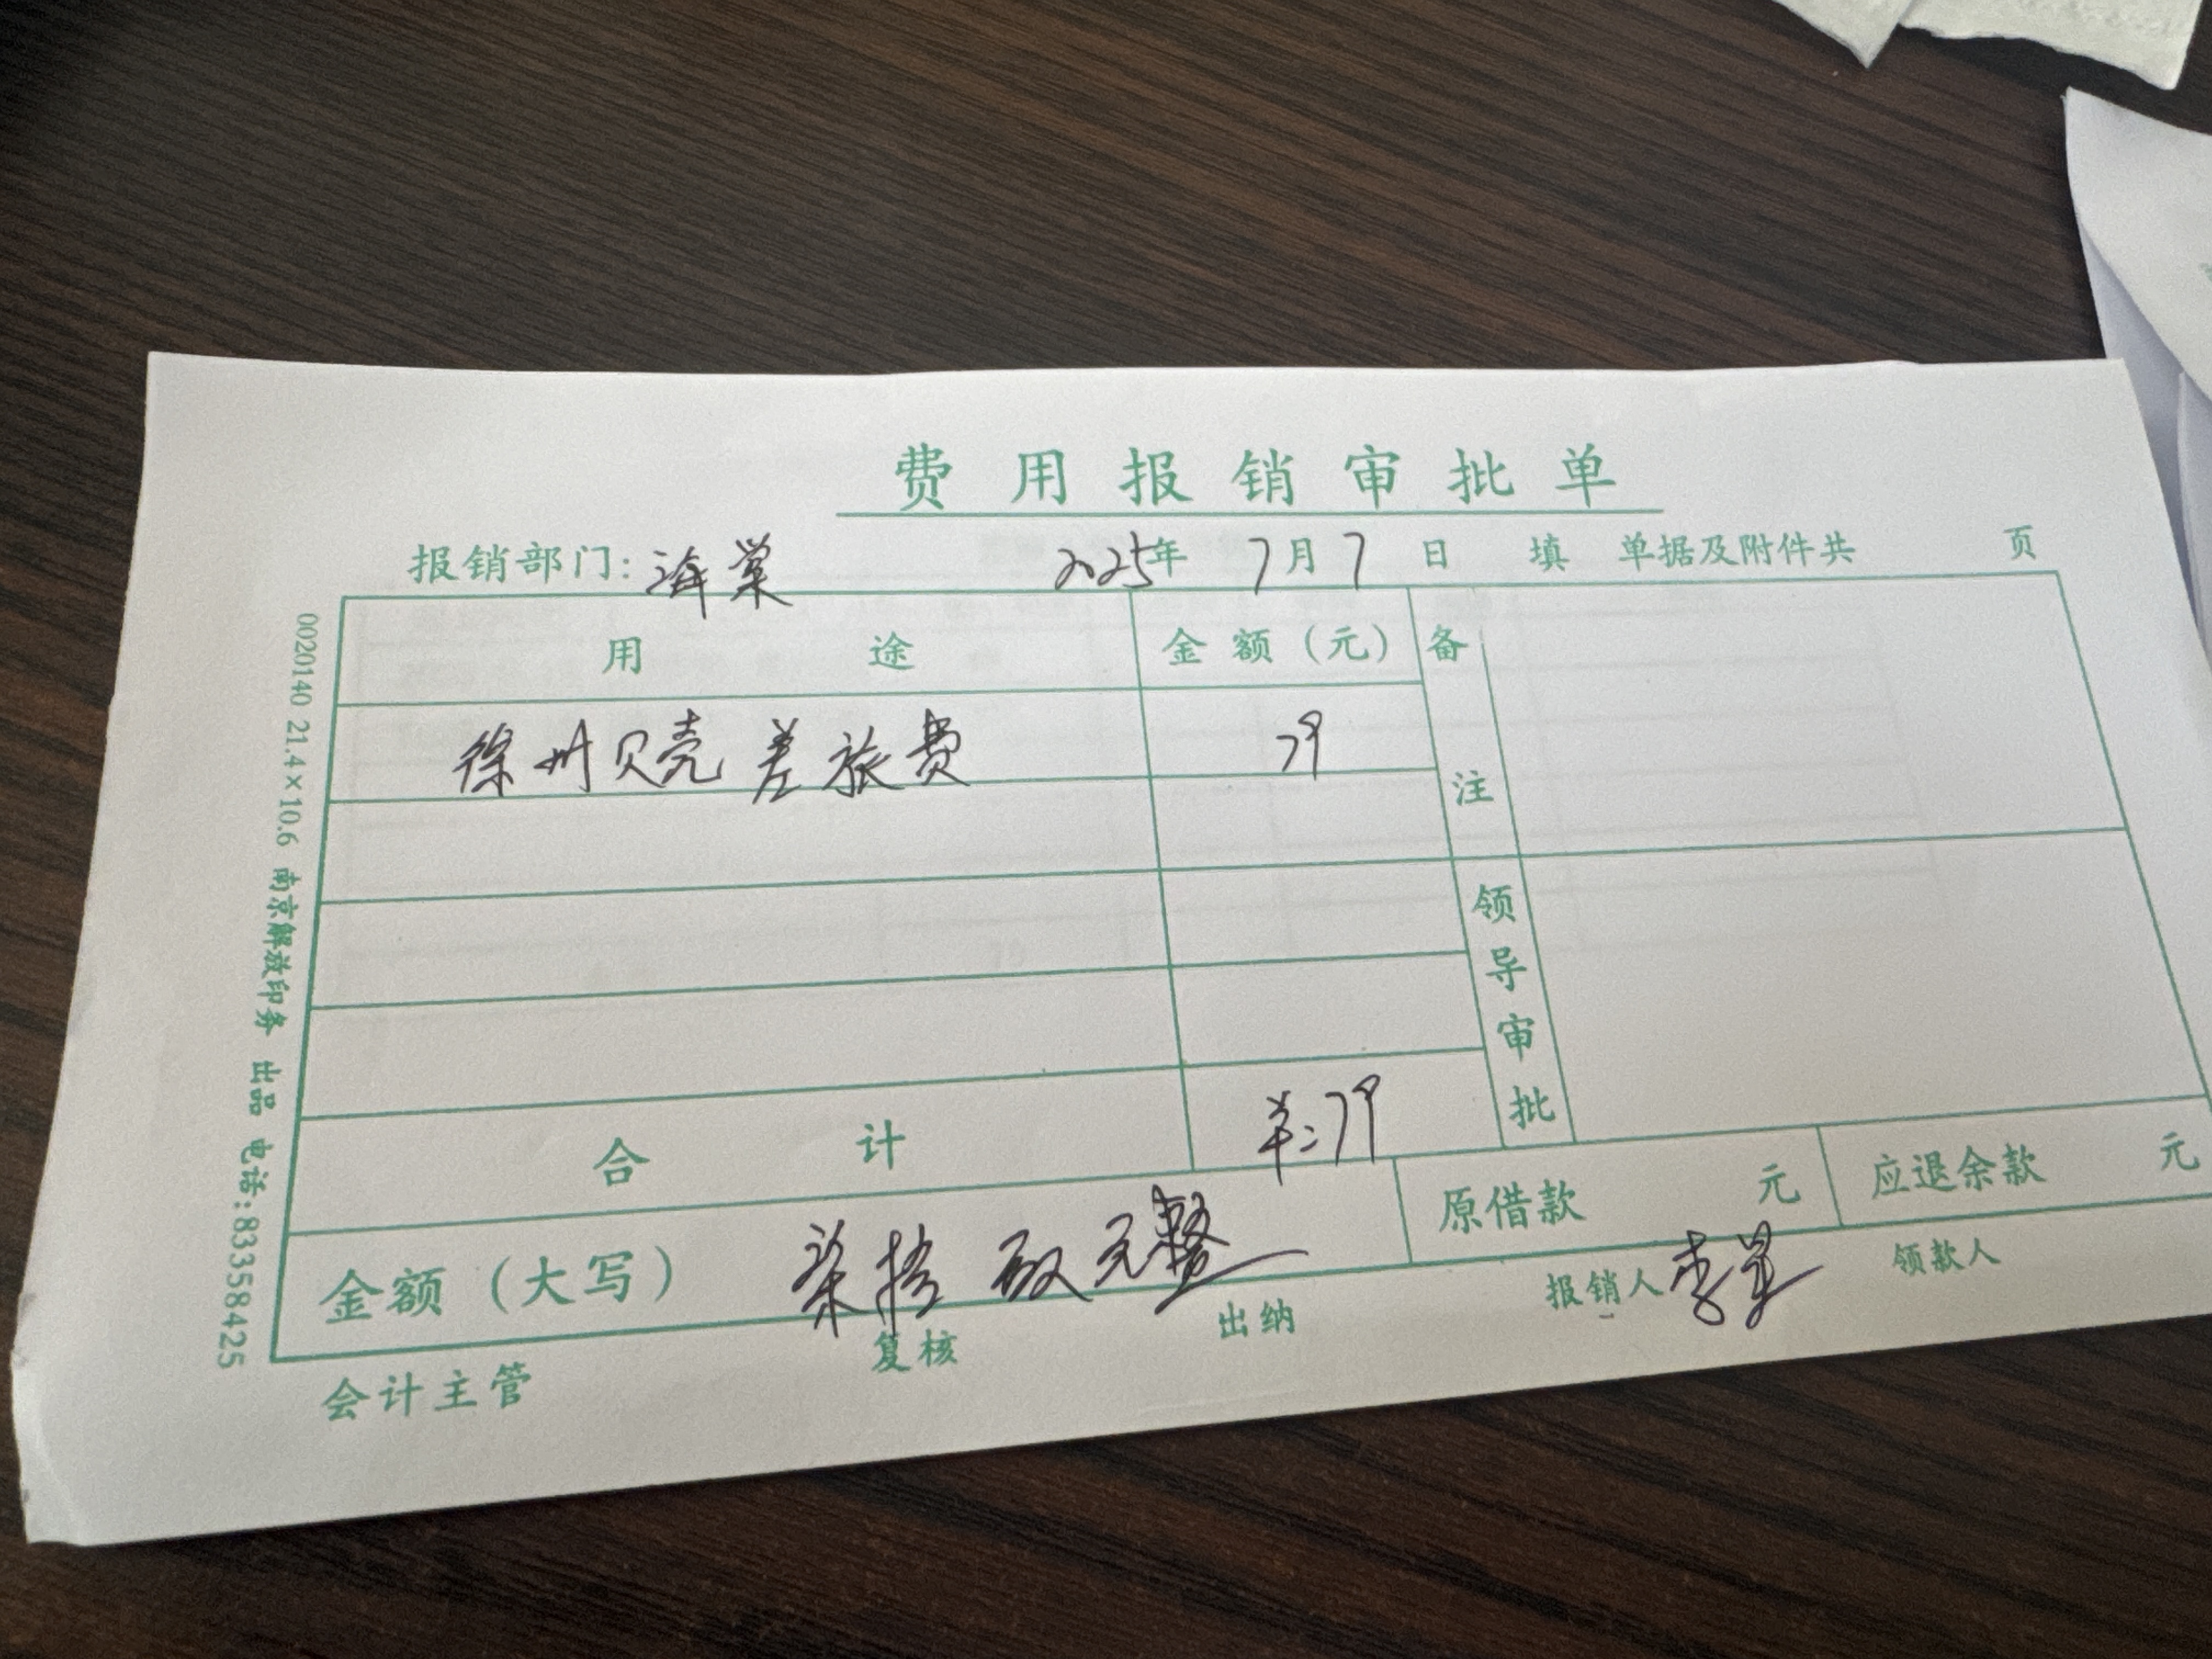 费用报销审批单
报销部门: 海棠 2025年 7月7日 填 单据及附件共 页
用途 金额(元) 备注
徐州贝壳差旅费 79
领导审批
合计 羊:79
金额(大写) 柒拾玖元整 原借款 元 应退余款 元
会计主管 复核 出纳 报销人 李 领款人
0020140 21.4×10.6 南京解放印务 出品 电话:83358425